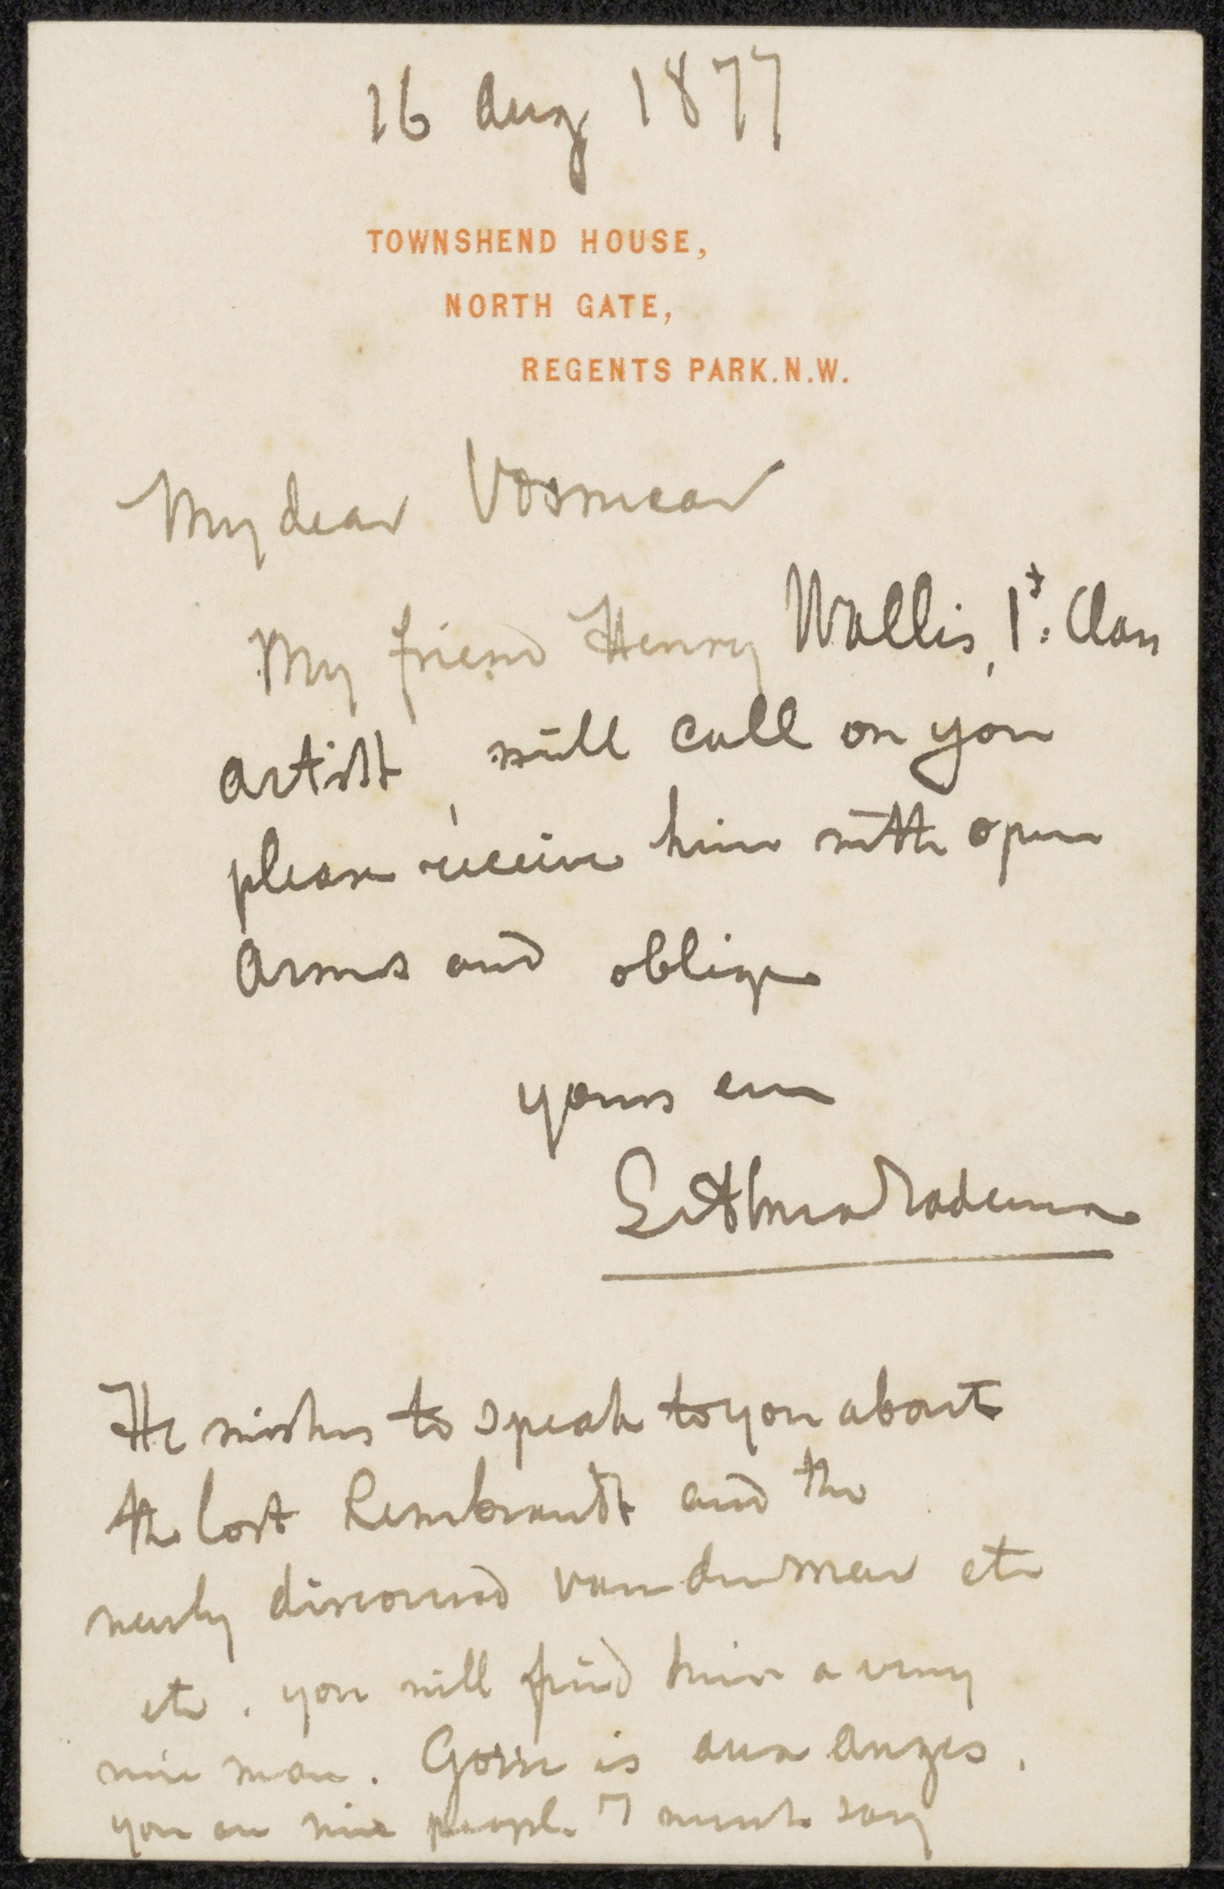 16 Aug 1877
TOWNSHEND HOUSE,
NORTH GATE,
REGENTS PARK.N.W.
My dear Vosmear
My friend Henry Wallis, 1st. Class
artist, will call on you
please receive him with open
arms and oblige
yours ever
L Alma Tadema
He wishes to speak to you about
the lost Rembrandt and the
newly discovered van der meer etc
etc. you will find him a very
nice man. Gosse is aux anges.
you are nice people I must say